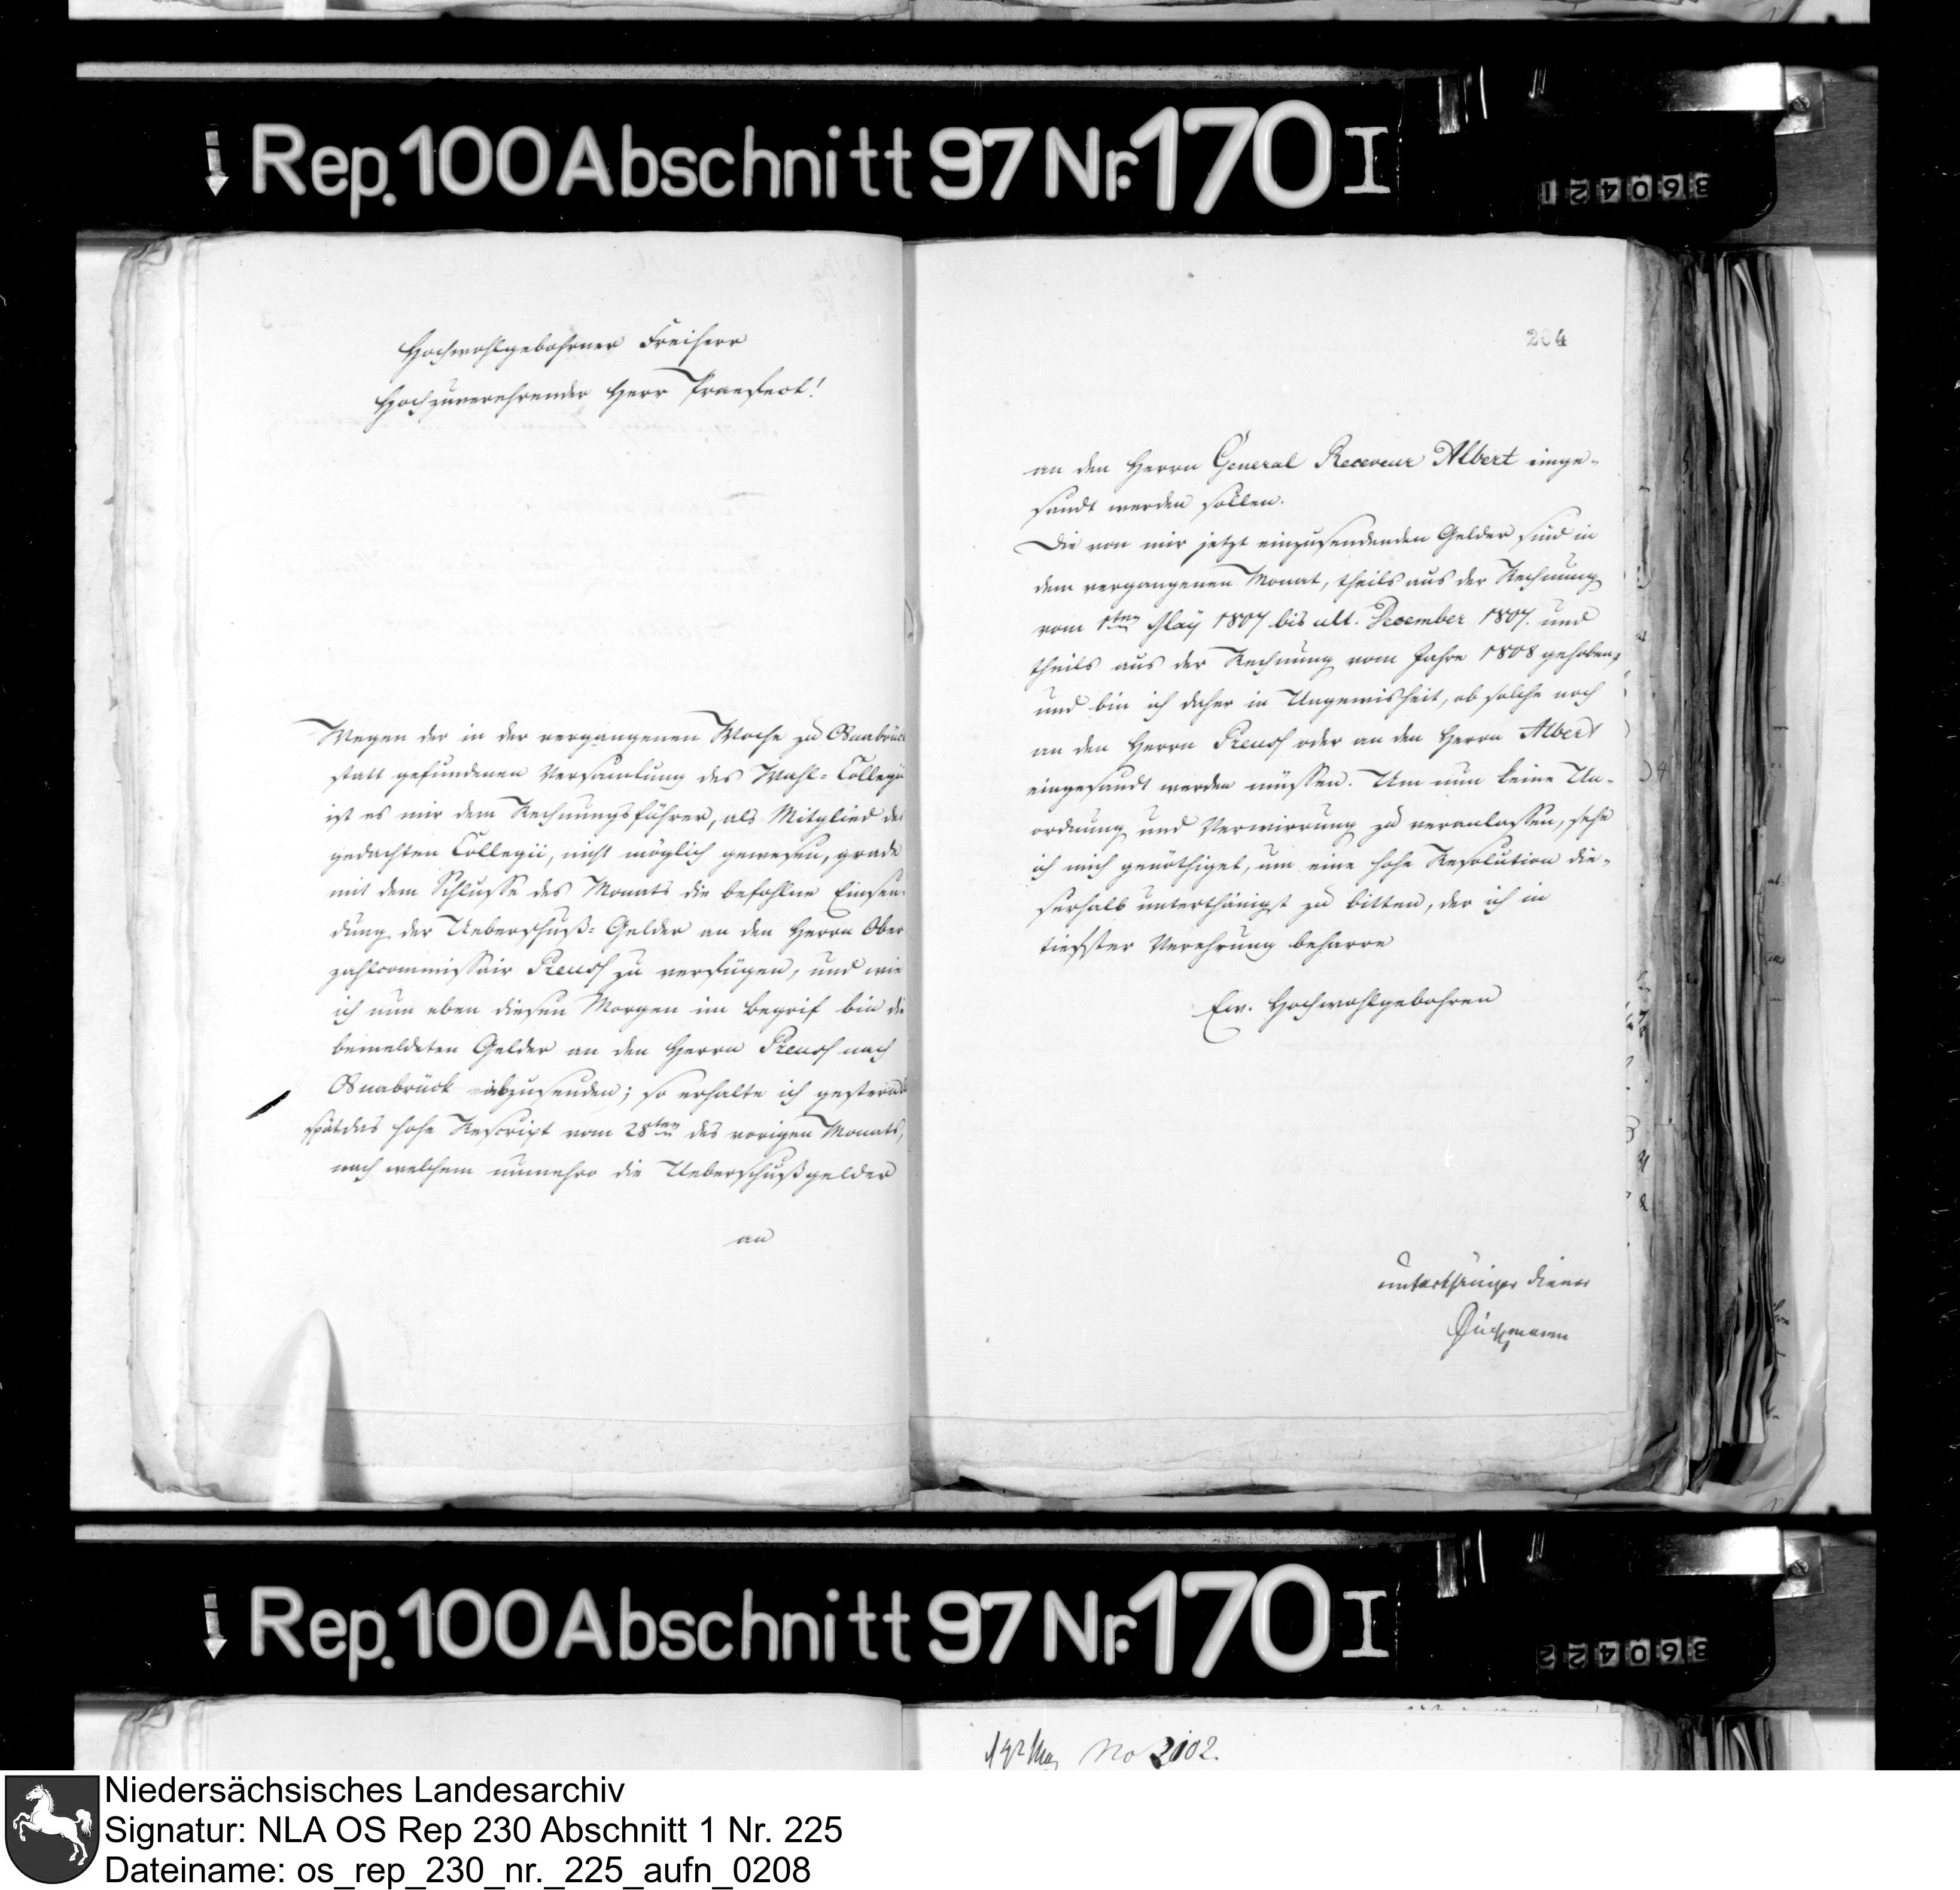 Rep. 100 Abschnitt 97 Nr. 170 I
360421
Hochwohlgebohrner Freiherr
Hochzuverehrender Herr Praefect!
Wegen der in der vergangenen Woche zu Osnabrück
statt gefundenen Versamlung des Wahl-Collegii
ist es mir dem Rechnungsführer, als Mitglied des
gedachten Collegii, nicht möglich gewesen, grade
mit dem Schlusse des Monats die befohlne Einsen-
dung der Ueberschuß-Gelder an den Herrn Ober
zahlcommissair Preuss zu verfügen, und wie
ich nun eben diesen Morgen im Begrif bin die
bemeldeten Gelder an den Herrn Preuss nach
Osnabrück abzusenden; so erhalte ich gestern
spät das hohe Rescript vom 28ten des vorigen Monats,
nach welchem nunmehro die Ueberschußgelder
an
204
an den Herrn General Receveur Albert einge-
sandt werden sollen.
Die von mir jetzt einzusendenden Gelder sind in
dem vergangenen Monat, theils aus der Rechnung
vom 1ten May 1807 bis ult. December 1807. und
theils aus der Rechnung vom Jahre 1808 gehoben,
und bin ich daher in Ungewisheit, ob solche noch
an den Herrn Preuss oder an den Herrn Albert
eingesandt werden müssen. Um nun keine Un-
ordnung und Verwirrung zu veranlassen, sehe
ich mich genöthiget, um eine hohe Resolution die-
serhalb unterthänigst zu bitten, der ich in
tiefster Verehrung beharre
Ew. Hochwohlgebohren
unterthäniger Diener
Rep. 100 Abschnitt 97 Nr. 170 I
360422
No 2102.
Niedersächsisches Landesarchiv
Signatur: NLA OS Rep 230 Abschnitt 1 Nr. 225
Dateiname: os_rep_230_nr._225_aufn_0208